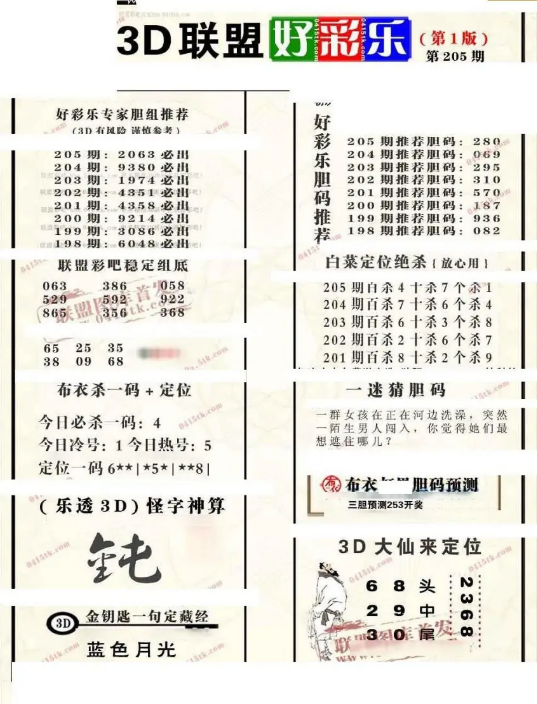 3D联盟好彩乐(第1版)
第205期
好彩乐专家胆组推荐
(3D有风险 谨慎参考)
205期:2063必出
204期:9380必出
203期:1974必出
202期:4351必出
201期:4358必出
200期:9214必出
199期:3086必出
198期:6048必出
联盟彩吧稳定组底
063 386 058
529 592 922
865 356 368
65 25 35
38 09 68
布衣杀一码+定位
今日必杀一码:4
今日冷号:1今日热号:5
定位一码6**|*5*|**8|
(乐透3D)怪字神算
3D
金钥匙一句定藏经
蓝色月光
好彩乐胆码推荐
205期推荐胆码:280
204期推荐胆码:069
203期推荐胆码:295
202期推荐胆码:310
201期推荐胆码:570
200期推荐胆码:187
199期推荐胆码:936
198期推荐胆码:082
白菜定位绝杀{放心用}
205期百杀4十杀7个杀1
204期百杀7十杀6个杀4
203期百杀6十杀3个杀8
202期百杀2十杀6个杀7
201期百杀8十杀2个杀9
一迷猜胆码
一群女孩在正在河边洗澡，突然
一陌生男人闯入，你觉得她们最
想遮住哪儿?
布衣 胆码预测
三胆预测253开奖
3D大仙来定位
68头
29中
30尾
2368
0415tk.com
联盟图库首发